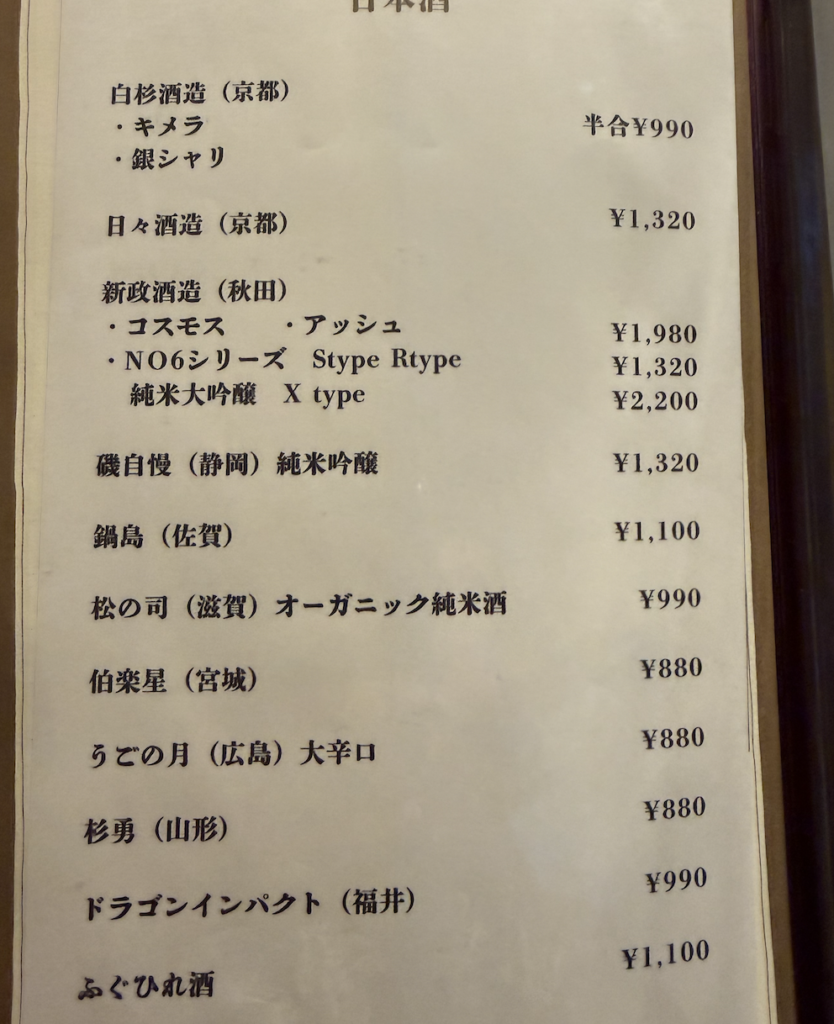 日本酒
白杉酒造（京都）
・キメラ 半合¥990
・銀シャリ
日々酒造（京都） ¥1,320
新政酒造（秋田）
・コスモス ・アッシュ ¥1,980
・NO6シリーズ Stype Rtype ¥1,320
純米大吟醸 X type ¥2,200
磯自慢（静岡）純米吟醸 ¥1,320
鍋島（佐賀） ¥1,100
松の司（滋賀）オーガニック純米酒 ¥990
伯楽星（宮城） ¥880
うごの月（広島）大辛口 ¥880
杉勇（山形） ¥880
ドラゴンインパクト（福井） ¥990
ふぐひれ酒 ¥1,100